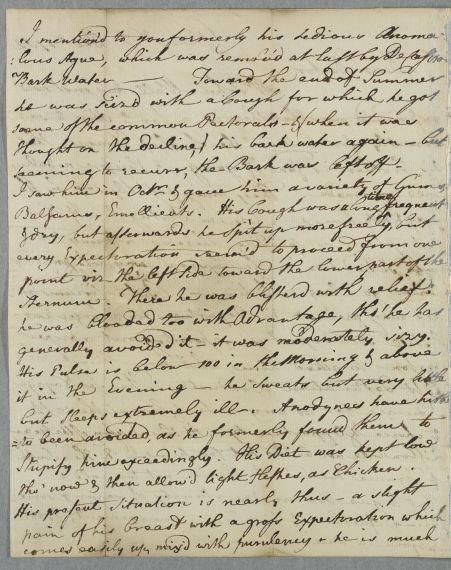 I mention'd to you formerly his tedious Anoma-
:lous Ague, which was remov'd at last by
Bark Water — Toward the end of Summer
he was seiz'd with a Cough for which he got
some of the common Pectorals – & (when it was
thought on the decline,) his bark water again – but
seeming to recurr, the Bark was left off.
I saw him in Octr. & gave him a variety of Gums,
Balsams, Emollients. His Cough was a long time frequent
& dry, but afterwards he spit up more freely, but
every Expectoration seem'd to proceed from one
point viz the left side toward the lower part of the
Sternum. There he was blister'd with relief.
he was blooded too with Advantage, tho' he has
generally avoided it – it was moderately sizy.
His Pulse is below 100 in the Morning & above
it in the Evening – he sweats but very little
but sleeps extremely ill. Anodynes have hither
=to been avoided, as he formerly found them to
Stupify him exceedingly. His Diet was kept low
tho' now & then allow'd light fleshes, as Chicken.
His present Situation is nearly thus – a slight
pain of his breast with a gross Expectoration which
comes easily up, mix'd with purulency & he is much